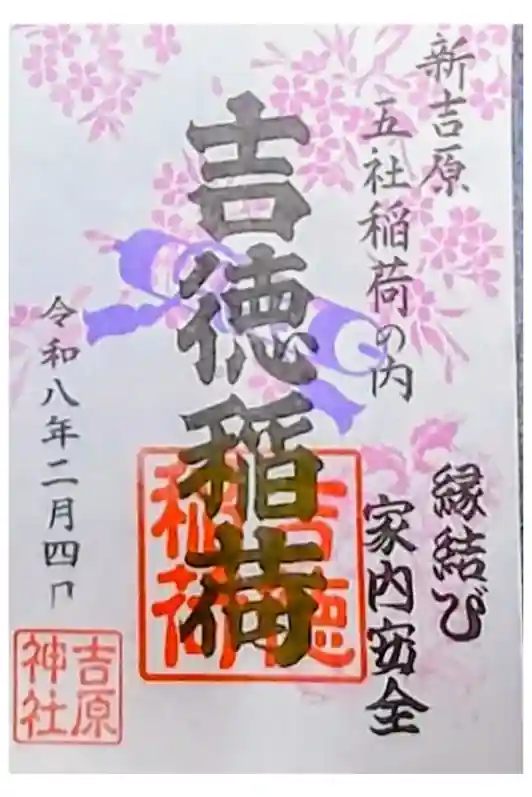 新吉原
五社稲荷の内
縁結び
家内安全
吉徳稲荷
吉徳
稲荷
令和八年二月四日
吉原
神社